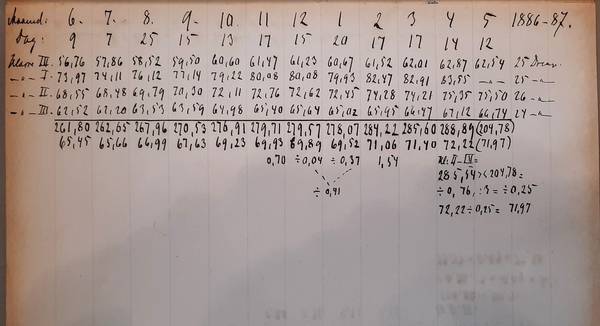 Maaned: 6. 7. 8. 9. 10. 11 12 1 2 3 4 5 1886-87.
Dag: 9 7 25 15 13 17 15 20 17 17 14 12
Klasse 56,76 57,86 58,52 59,50 60,60 61,47 61,23 60,67 61,52 62,01 62,87 62,54 25 Dreng.
-"- I. 73,97 74,11 76,12 77,14 79,22 80,08 80,08 79,93 82,47 82,91 83,55 -"- 25 -"-
-"- II. 68,55 68,48 69,79 70,30 72,11 72,76 72,62 72,45 74,28 74,21 75,35 75,50 26 -"-
-"- III. 62,52 62,20 63,53 63,59 64,98 65,40 65,64 65,02 65,95 66,47 67,12 66,74 24 -"-
261,80 262,65 267,96 270,53 276,91 279,71 279,57 278,07 284,22 285,60 288,89 (204,78)
65,45 65,66 66,99 67,63 69,23 69,93 69,89 69,52 71,06 71,40 72,22 (71,97)
0,70 ÷ 0,04 ÷ 0,37 1,54 Kl: II-IV=
÷ 0,41 205,54 >< 204,78=
÷ 0,76, :3 = ÷ 0,25
72,22 ÷ 0,25 = 71,97